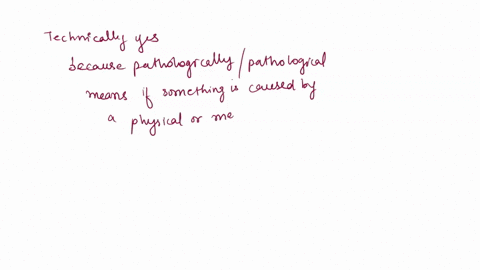 Technically yes
because pathologically/pathological
means if something is caused by
a physical or me